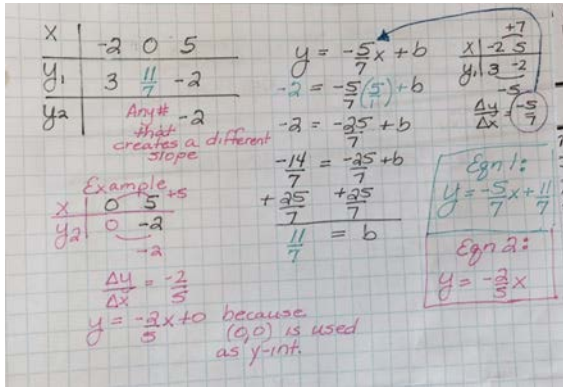 x | -2 0 5
y₁ | 3 11/7 -2
y₂ | -2
Any #
that
creates a different
slope
Example
+5
x | 0 5
y₂ | 0 -2
-2
Δy/Δx = -2/5
y = -2/5 x + 0 because
(0,0) is used
as y-int.
y = -5/7 x + b
-2 = -5/7 (5/1) + b
-2 = -25/7 + b
-14/7 = -25/7 + b
+ 25/7 +25/7
11/7 = b
+7
x | -2 5
y₁ | 3 -2
-5
Δy/Δx = -5/7
Eqn 1:
y = -5/7 x + 11/7
Eqn 2:
y = -2/5 x